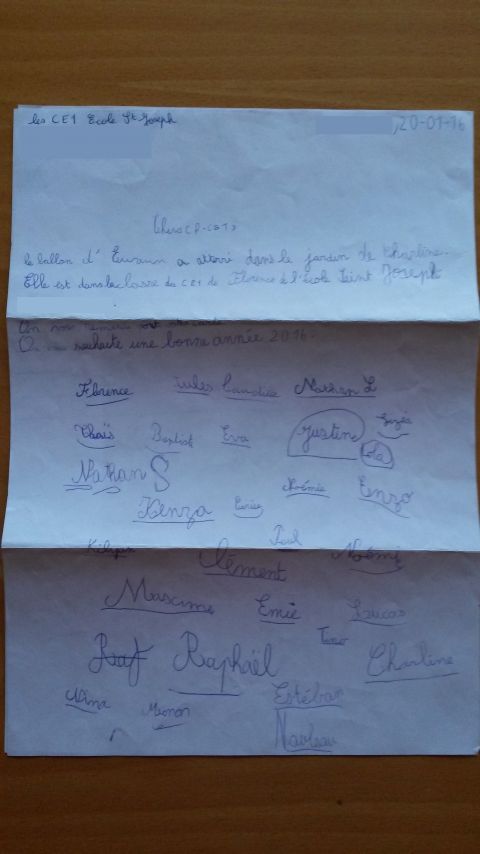 les CE1 Ecole St Joseph
,20-01-16
Chers CP-CE1,
le ballon d' a atterri dans le jardin de Charline.
Elle est dans la classe de CE1 de Florence à l'école Saint Joseph
.
On vous votre carte.
On vous souhaite une bonne année 2016.
Florence Jules Candice Nathan L
Thaïs Baptist Eva Justine
Lola
Nathan S Noémie Enzo
Kenza
Paul
Clément Noémi
Maxime Emie Lucas
Timo
Raf Raphaël Charline
Nina Manon Estéban